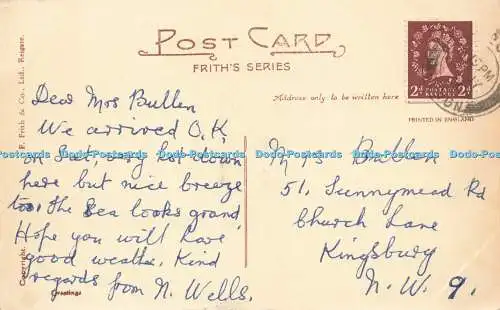 POST CARD
FRITH'S SERIES
Address only to be written here
PRINTED IN ENGLAND
2d POSTAGE REVENUE 2d
Copyright. F. Frith & Co., Ltd., Reigate.
Dear Mrs Bullen
We arrived O.K
on Sat very hot down
here but nice breeze
too. The Sea looks grand
Hope you will have
good weather. Kind
regards from N. Wells.
Greetings
Mrs Bullen
51, Sunnymead Rd
Church Lane
Kingsbury
N. W. 9.
Dodo-Postcards Dodo-Postcards Dodo-Postcards Dodo-Postcards Dodo-Postcards